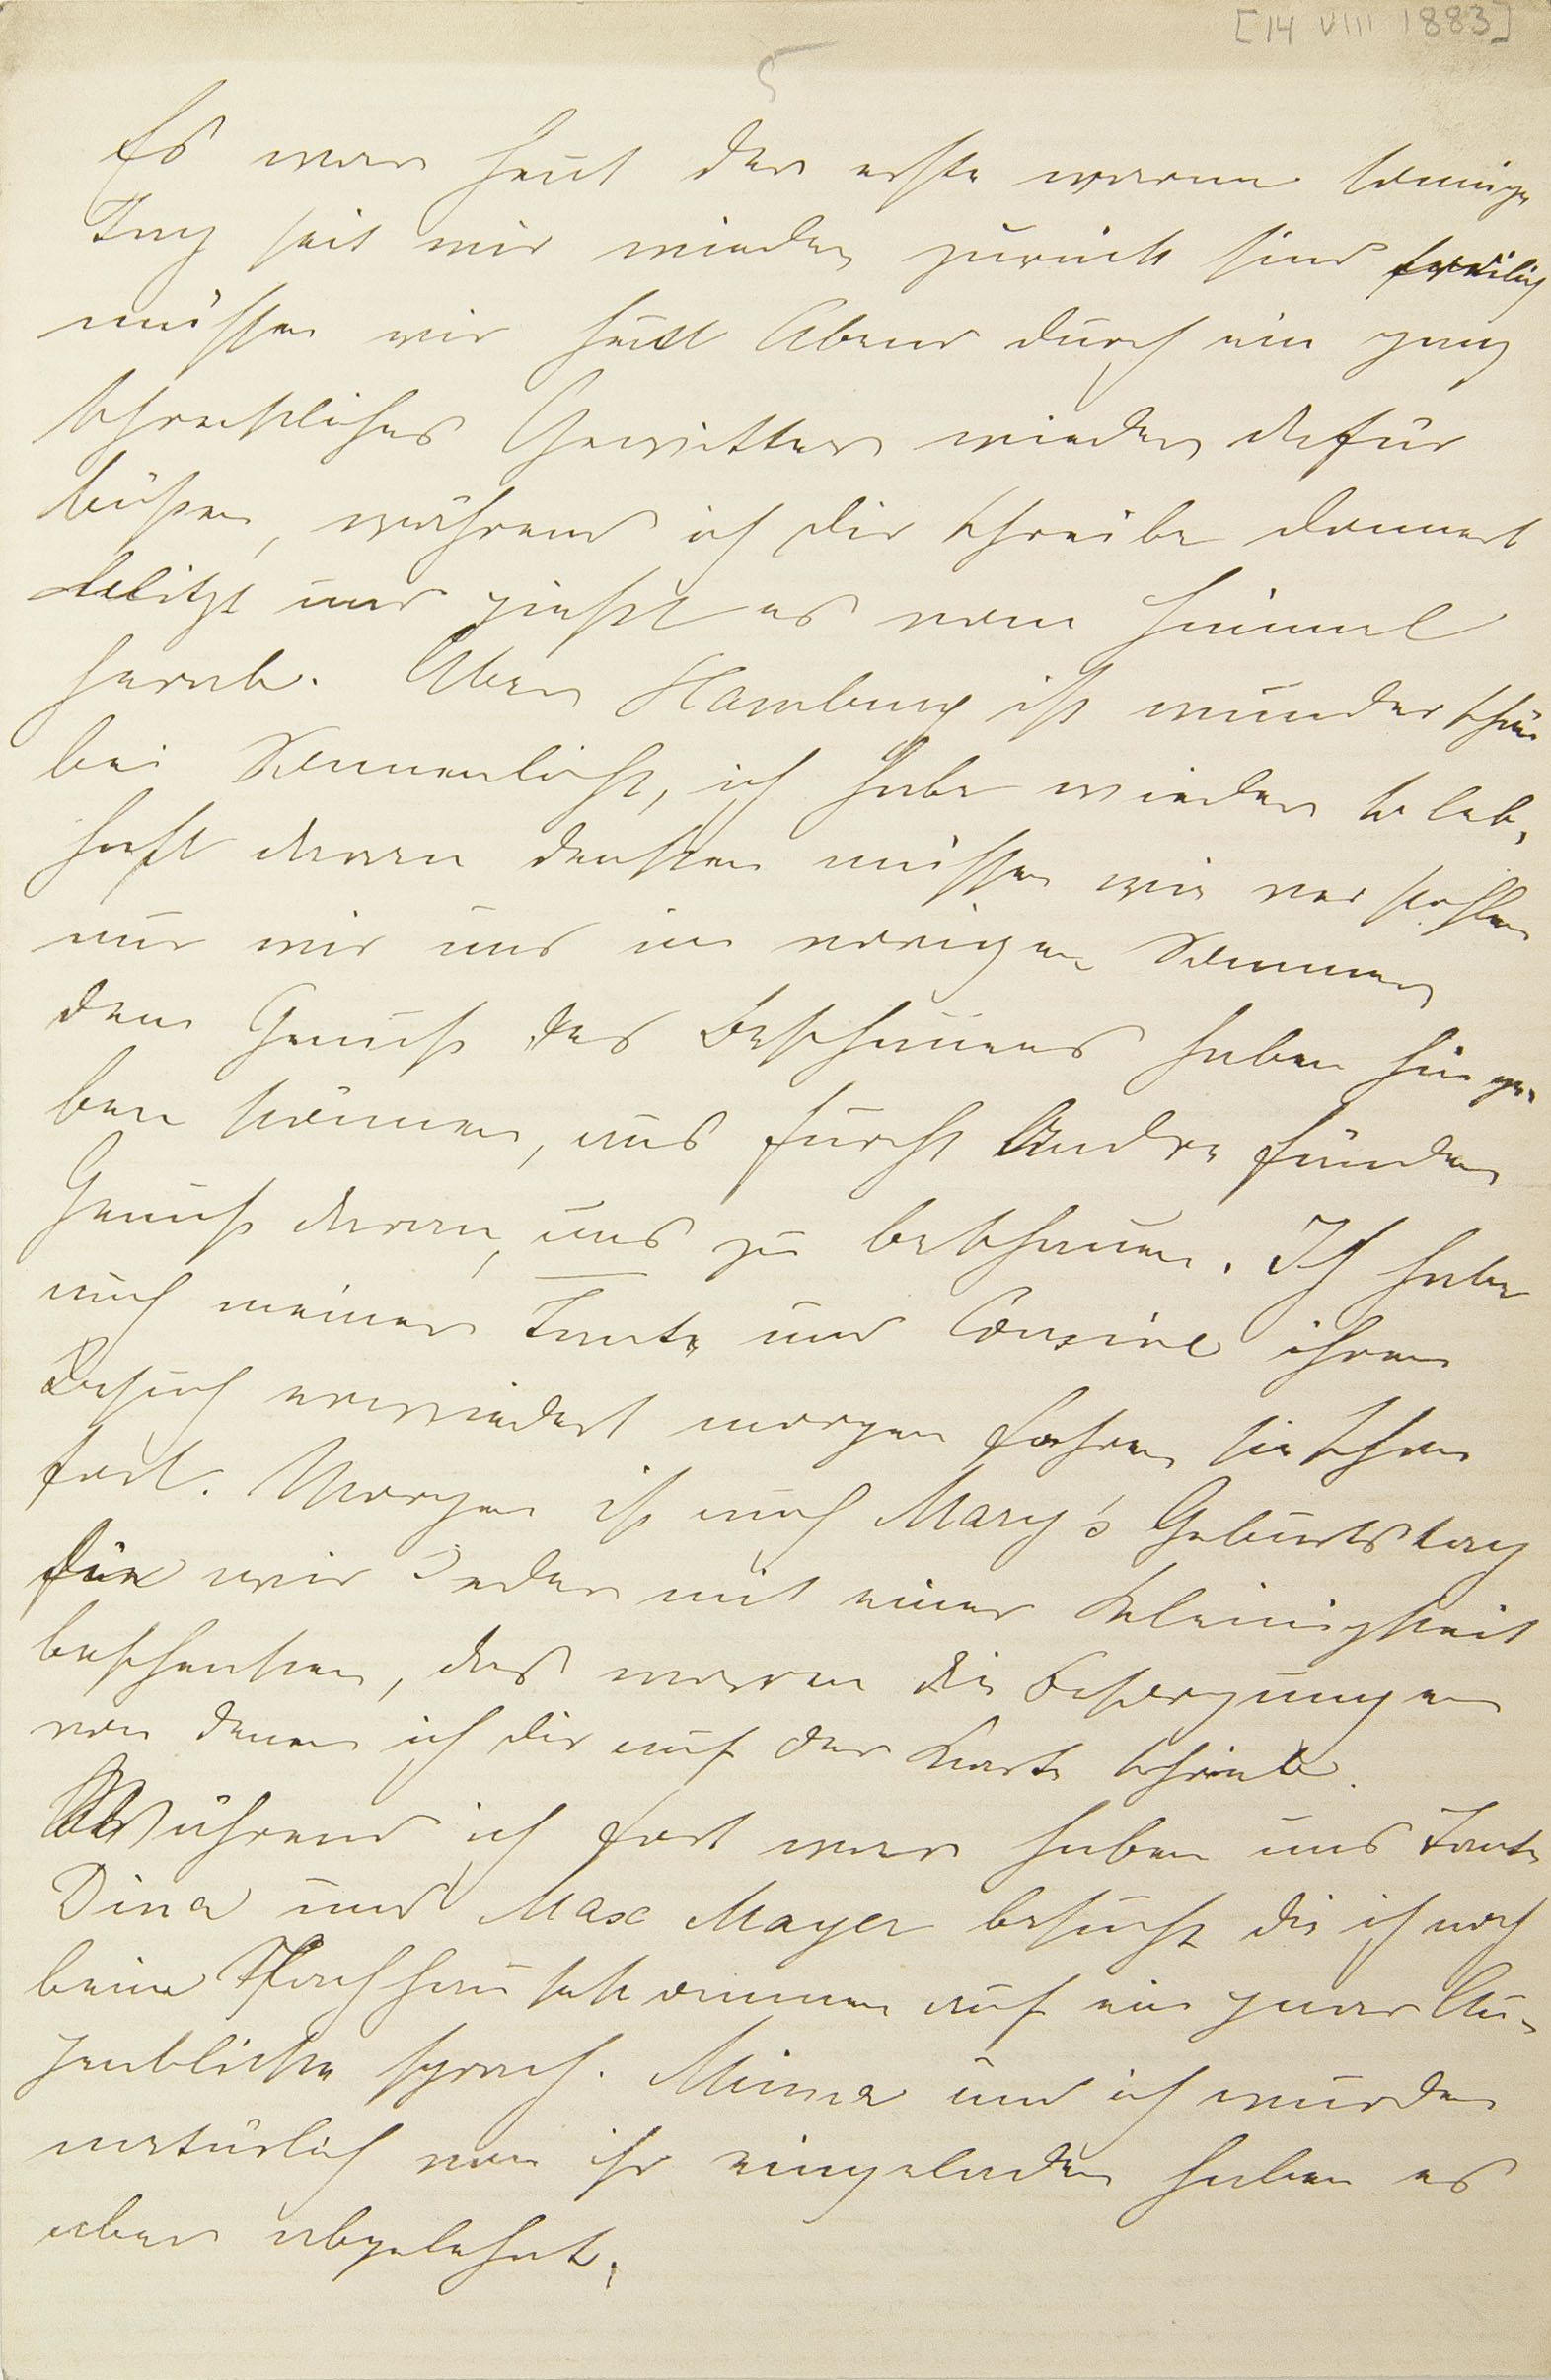 [14 VIII 1883]
5
Es war heut der erste warme sonnige
Tag seit wir wieder zurück sind freilich
müssen wir heut Abend durch ein ganz
schreckliches Gewitter wieder dafür
büßen, während ich dir schreibe donnert
blitzt und gießt es vom Himmel
herab. Aber Hamburg ist wunderschön
bei Sonnenlicht, ich habe wieder so leb-
haft daran denken müssen wie verstohlen
nur wir uns im vorigen Sommer
dem Genuß des Beschauens haben hinge-
ben können, aus Furcht Andre fänden
Genuß daran, uns zu beschauen. Ich habe
auch meiner Tante und Cousine ihren
Besuch erwiedert morgen fahren sie schon
fort. Morgen ist auch Mary's Geburtstag
für wir Jeder mit einer Kleinigkeit
beschenken, das waren die Besorgungen
von denen ich dir auf der Karte schrieb.
Während ich fort war haben uns Tante
Dina und Max Mayer besucht die ich noch
beim Nachhausekommen auf ein paar Au-
genblicke sprach. Minna und ich wurden
natürlich von ihr eingeladen haben es
aber abgelehnt.